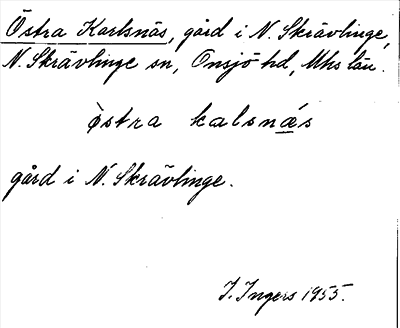 Östra Karlsnäs, gård i N. Skrävlinge,
N. Skrävlinge sn, Onsjö hd, Mhs län.
östra kalsnäs
gård i N. Skrävlinge.
I. Ingers 1955.